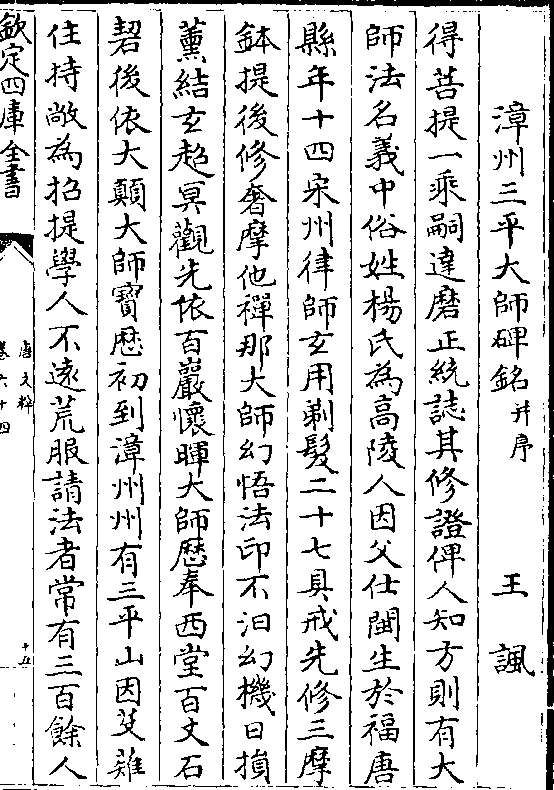 漳州三平大師碑銘并序 王諷
得菩提一乘嗣達磨正統誌其修證俾人知方則有大
師法名義中俗姓楊氏為高陵人因父仕閩生於福唐
縣年十四宋州律師玄用剃髮二十七具戒先修三摩
鉢提後修奢摩他禪那大師幻悟法印不汨幻機日損
薰結玄超冥觀先依百巖懷暉大師歷奉西堂百丈石
鞏後依大顛大師寶歷初到漳州州有三平山因芟薙
住持敞為招提學人不遠荒服請法者常有三百餘人
欽定四庫全書
唐文粹
卷六十四
十五